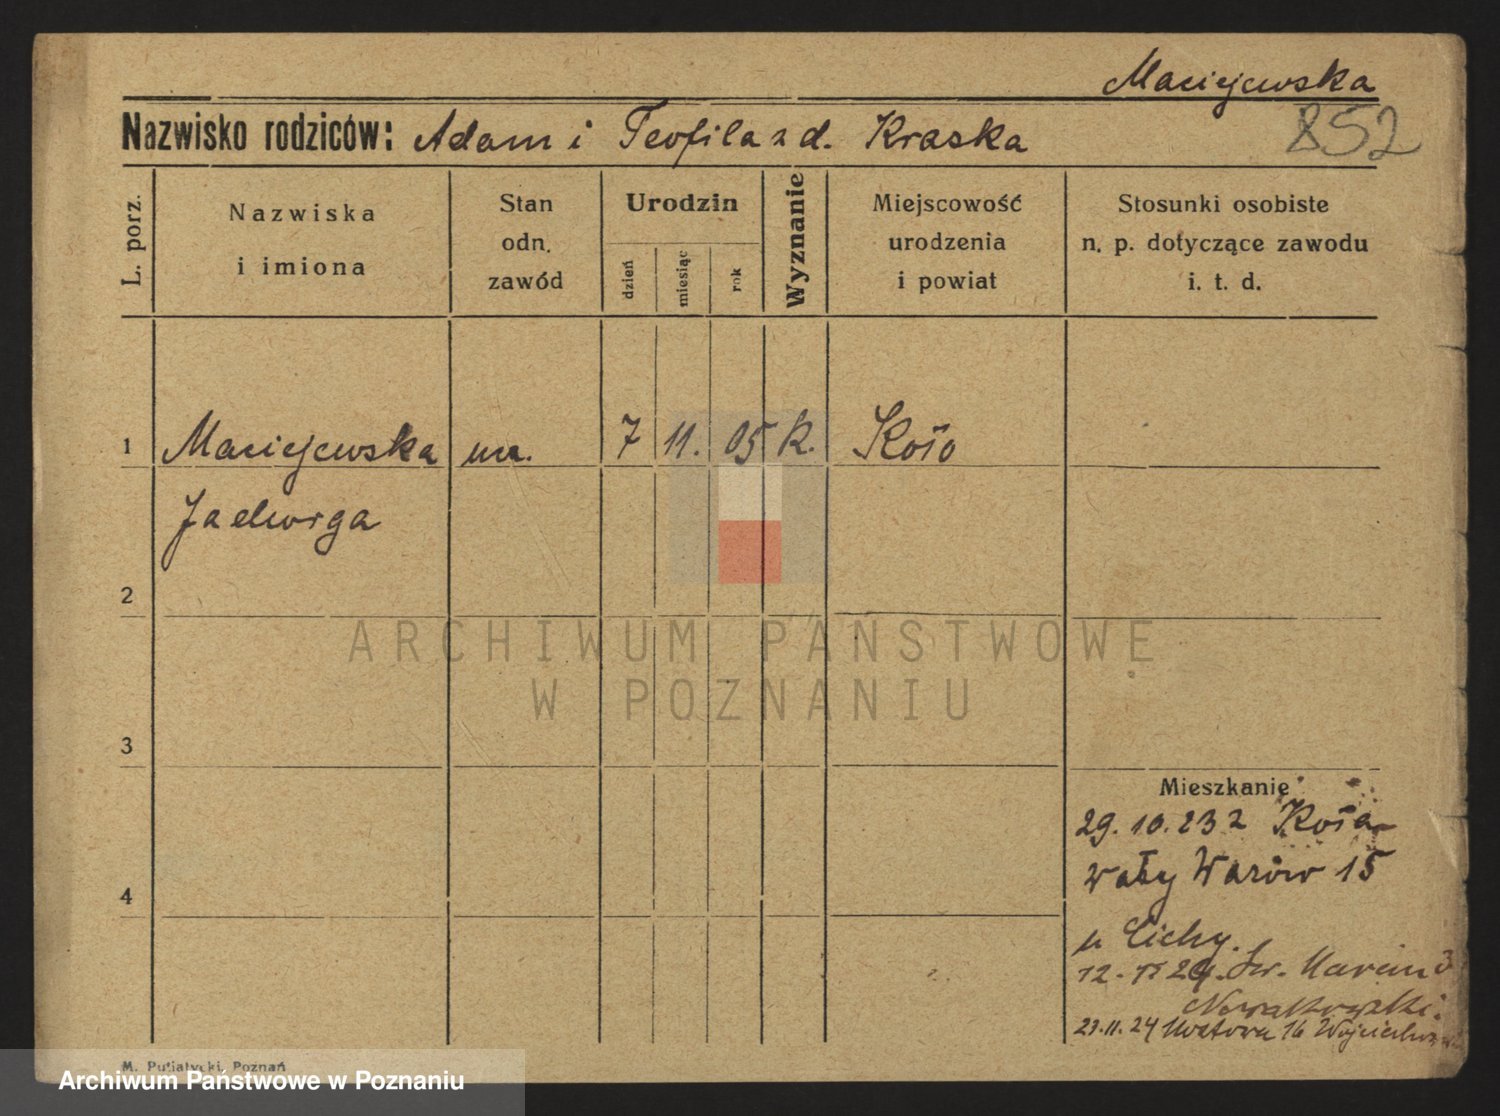 Maciejewska
Nazwisko rodziców: Adam i Teofila z d. Kraska
852
L. porz.
Nazwiska
i imiona
Stan
odn.
zawód
Urodzin
dzień
miesiąc
rok
Wyznanie
Miejscowość
urodzenia
i powiat
Stosunki osobiste
n. p. dotyczące zawodu
i. t. d.
1 Maciejewska 7 11. 05 k. Koło
Jadwiga
2
3
4
Mieszkanie
29.10.23 z Koła
Wały Warów 15
u Cichy.
12. 24. Św. Marcin 3
Nowakowski.
23.11.24 16
M. Putiatycki, Poznań
ARCHIWUM PAŃSTWOWE
W POZNANIU
Archiwum Państwowe w Poznaniu